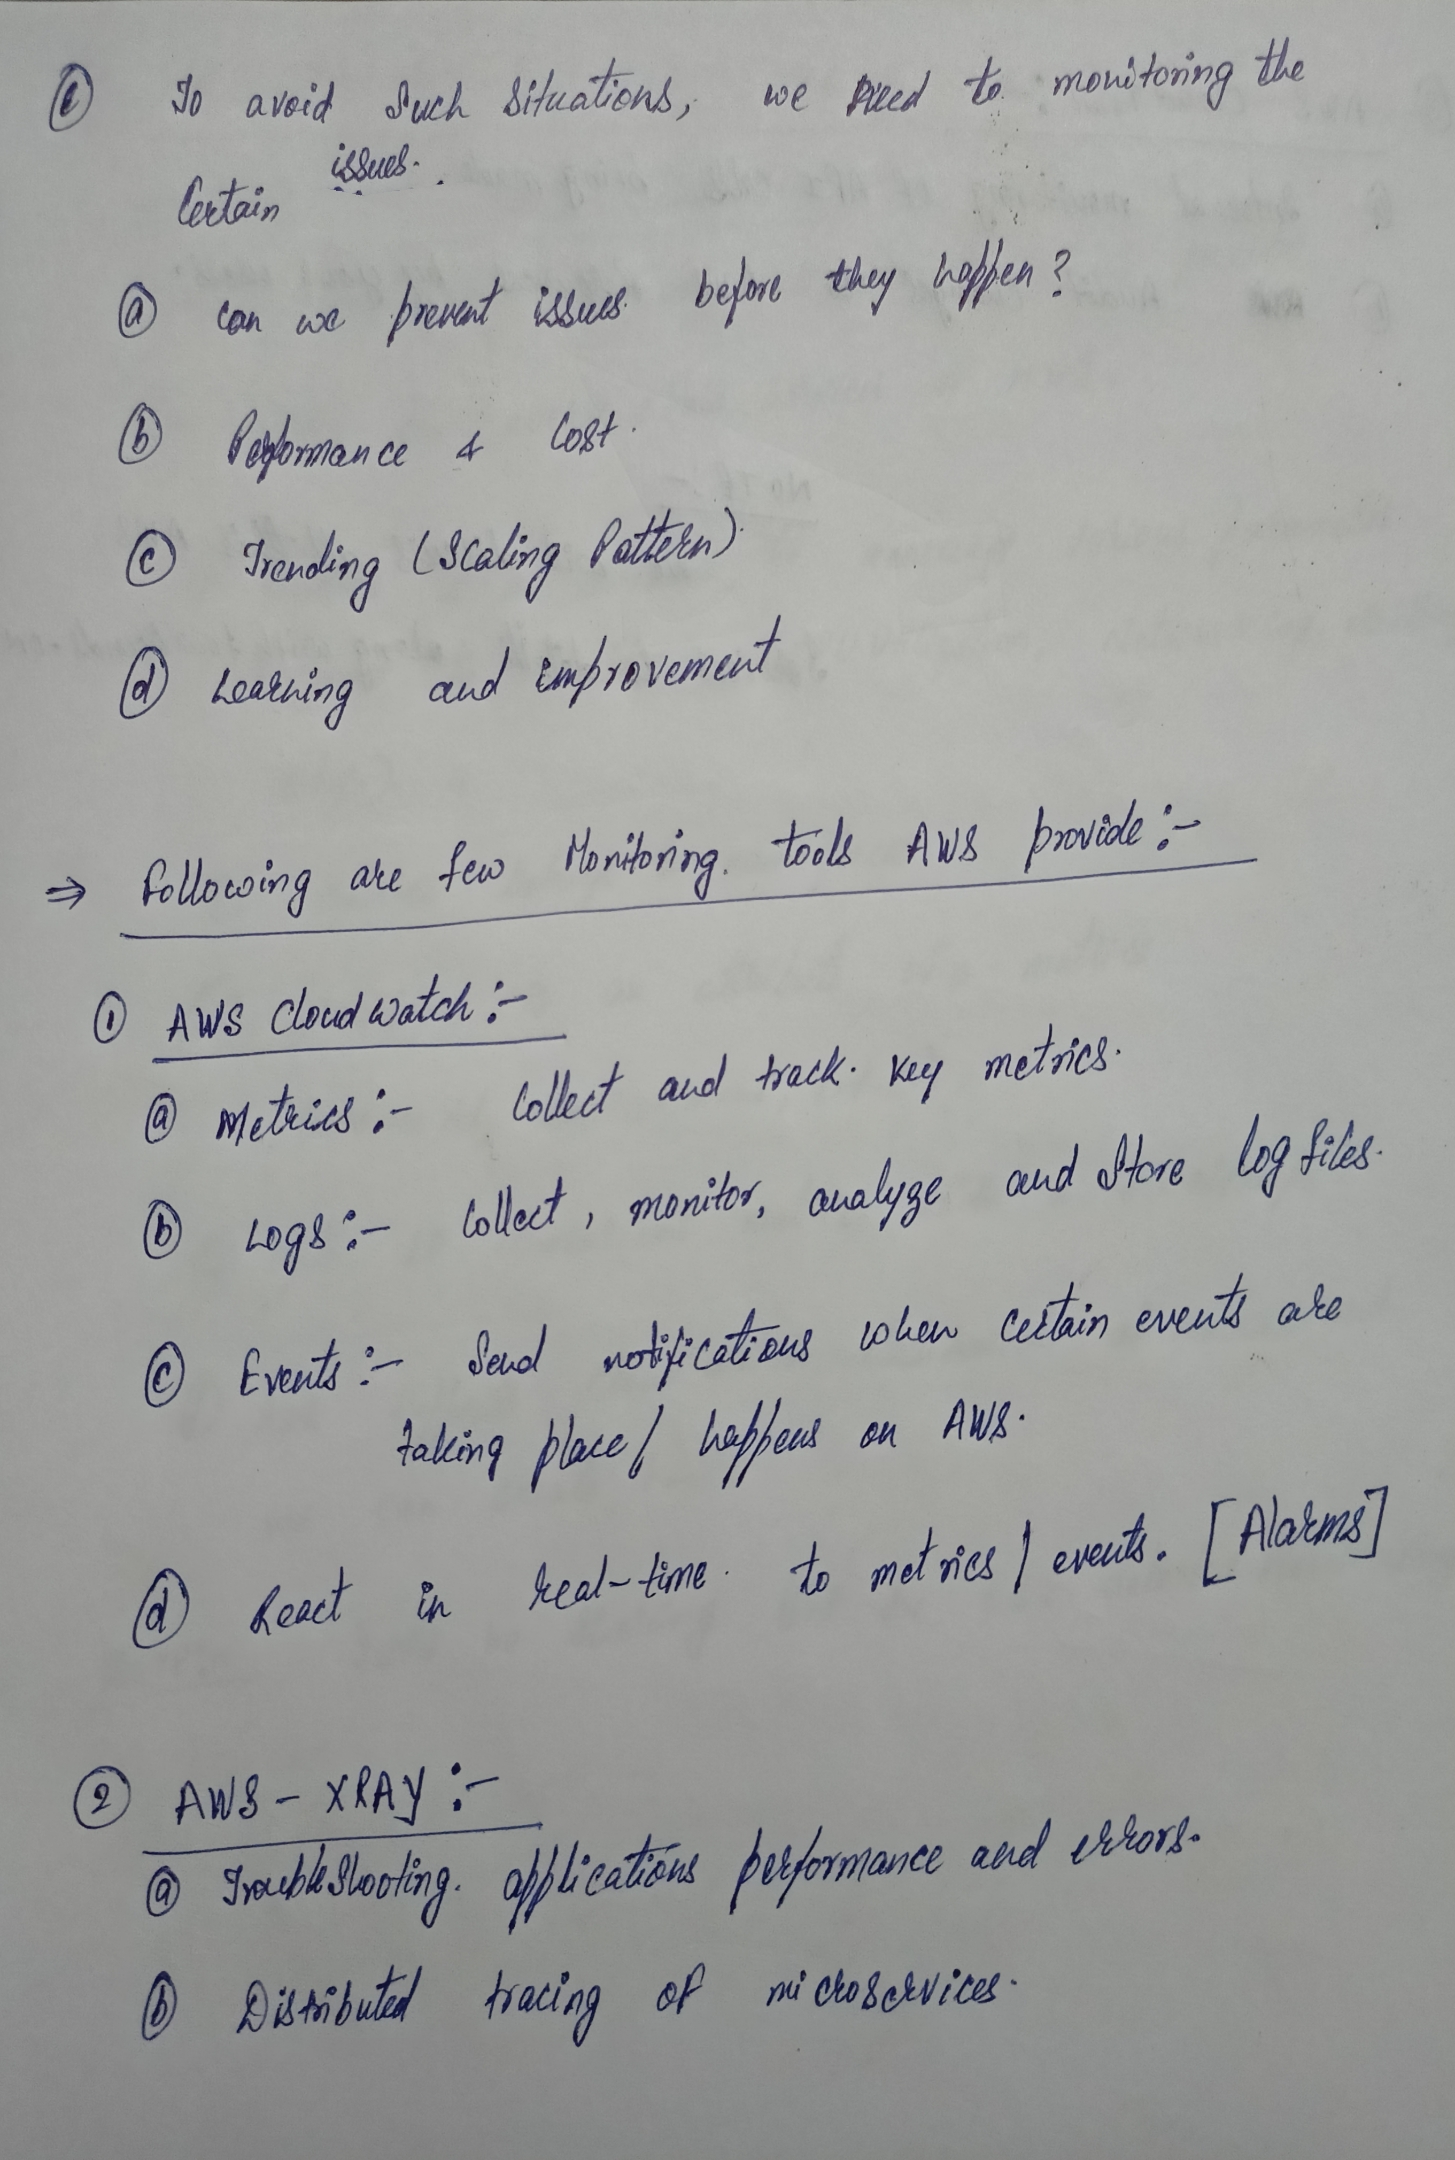 To avoid Such Situations, we need to monitoring the
Certain issues.
(a) can we prevent issues before they happen?
(b) Performance & Cost.
(c) Trending (Scaling Pattern)
(d) Learning and improvement
⇒ Following are few Monitoring tools AWS provide :-
(1) AWS CloudWatch :-
(a) Metrics :- Collect and track key metrics.
(b) Logs :- Collect, monitor, analyze and Store log files.
(c) Events :- Send notifications when certain events are
taking place / happens on AWS.
(d) React in real-time to metrics / events. [Alarms]
(2) AWS - XRAY :-
(a) TroubleShooting applications performance and errors.
(b) Distributed tracing of microservices.